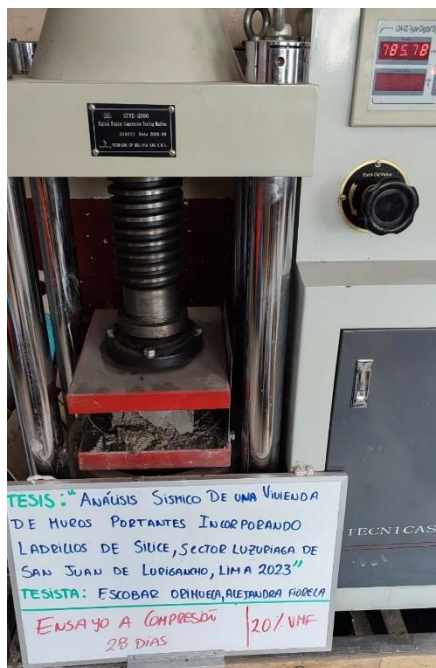 LM-02 Type Digital
785.78
STYE-2000
Digital Display Compression Testing Machine
TECNICAS CP BOLIVIA SAC S.R.L.
Back Oil Valve
TECNICAS
TESIS: "ANÁLISIS SÍSMICO DE UNA VIVIENDA
DE MUROS PORTANTES INCORPORANDO
LADRILLOS DE SILICE, SECTOR LUZURIAGA DE
SAN JUAN DE LURIGANCHO, LIMA 2023"
TESISTA: ESCOBAR ORIHUELA, ALEJANDRA FIORELA
ENSAYO A COMPRESIÓN
28 DIAS
20% VMF